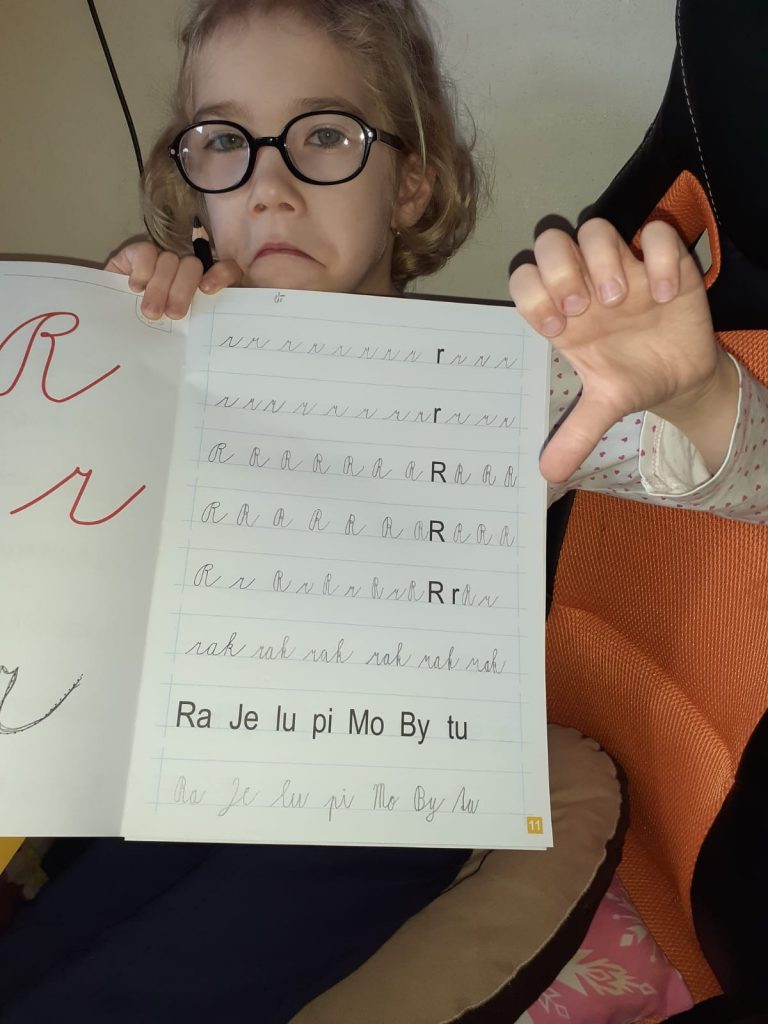 R
r
r
r r r r r r r r r r r r
r r r r r r r r r r r r
R R R R R R R R R R R
R R R R R R R R R R R
R r R r R r R r R R r R r
rak rak rak rak rak rak
Ra Je lu pi Mo By tu
Ra Je lu pi Mo By tu
11